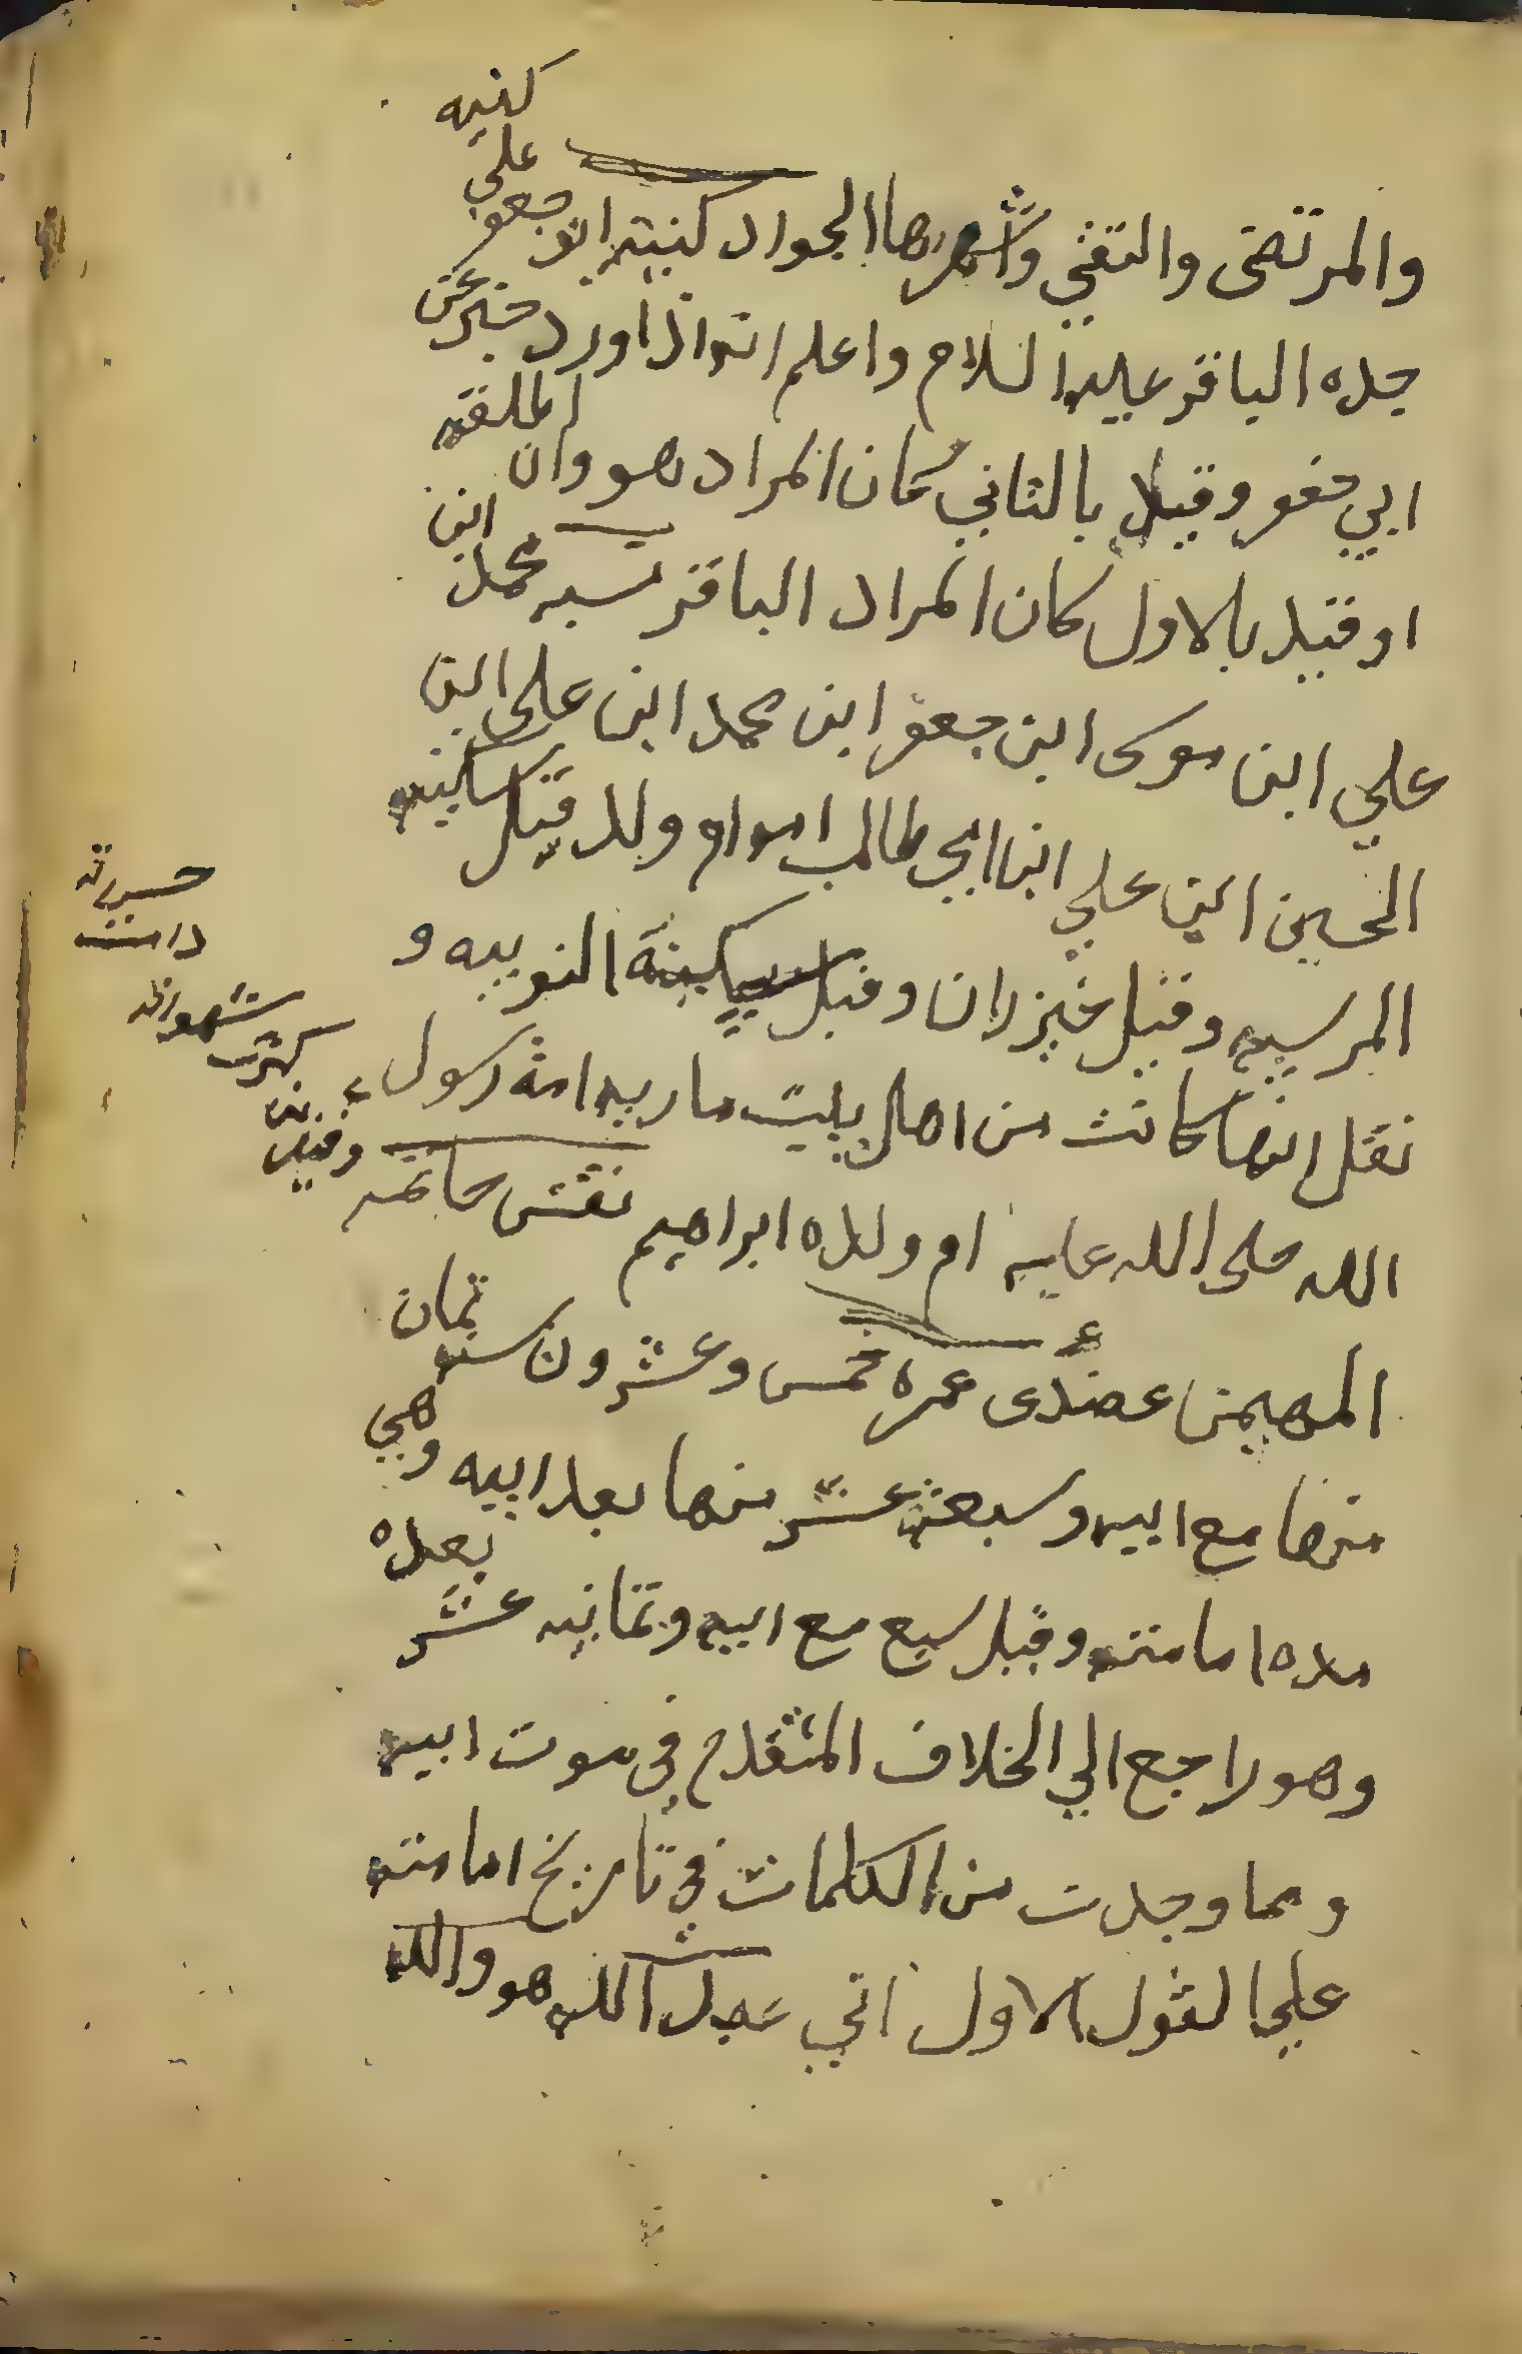 والمرتضى والتقي واشهرها الجواد كنيته ابو جعفر علي كنيه
جده الباقر عليه السلام واعلم انه اذا ورد خبر عن
ابي جعفر وقيد بالثاني كان المراد هو وان اطلقه
او قيد بالاول كان المراد الباقر نسبه محمد ابن
علي ابن موسى ابن جعفر ابن محمد ابن علي ابن
الحسين ابن علي ابن ابي طالب ام ولد قيل سكينه
المرسيه وقيل خيزران وقيل سبيكينة النوبيه و
نقل انها كانت من اهل بيت ماريه امة رسول
الله صلى الله عليه ام ولده ابراهيم نقش خاتمه
المهيمن عضدى عمره خمس وعشرون سنه ثمان
منها مع ابيه وسبعة عشر منها بعد ابيه وهي
مده امامته وقيل سبع مع ابيه وثمانيه عشر بعده
وهو راجع الي الخلاف المتقدم في موت ابيه
ومما وجدت من الكلمات في تاريخ امامته
علي القول الاول اني عبد الله هو والله
شهواته
كثرت
وقيل من